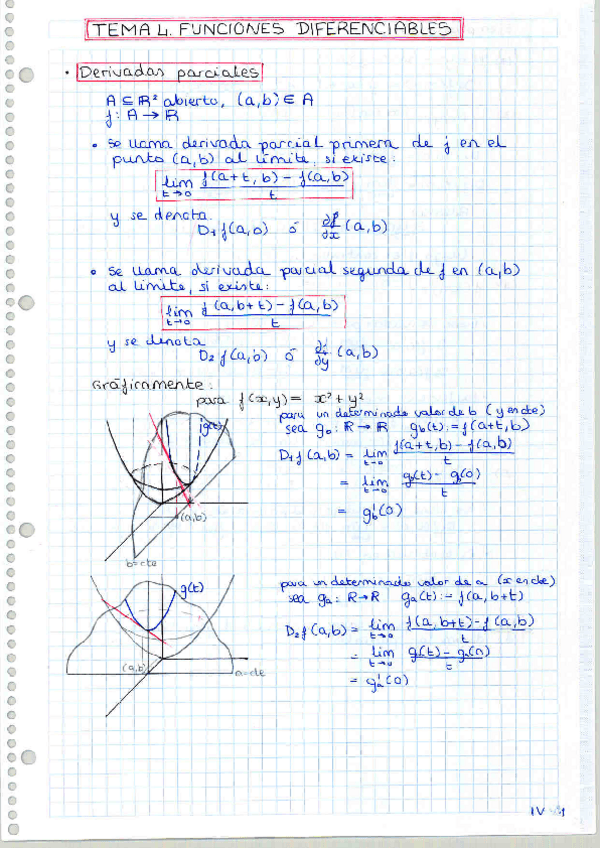 TEMA 4. FUNCIONES DIFERENCIABLES
· Derivadas parciales
A ⊆ R² abierto, (a,b) ∈ A
f: A → R
• Se llama derivada parcial primera de f en el
punto (a,b) al límite, si existe:
lim t→0 f(a+t, b) − f(a,b) / t
y se denota.
D₁ f(a,b) ó ∂f/∂x (a,b)
• Se llama derivada parcial segunda de f en (a,b)
al límite, si existe:
lim t→0 f(a,b+t) − f(a,b) / t
y se denota
D₂ f(a,b) ó ∂f/∂y (a,b)
Gráficamente:
para f(x,y) = x² + y²
para un determinado valor de b (y en cte)
sea g_b: R → R g_b(t) := f(a+t, b)
g(t)
D₁f(a,b) = lim t→0 f(a+t,b) − f(a,b) / t
= lim t→0 g_b(t) − g(0) / t
= g'_b(0)
(a,b)
b=cte
para un determinado valor de a (x en cte)
sea g_a: R→R g_a(t) := f(a,b+t)
g(t)
D₂f(a,b) = lim t→0 f(a,b+t) − f(a,b) / t
= lim t→0 g(t) − g_a(0) / t
= g'_a(0)
(a,b)
a=cte
IV - 1